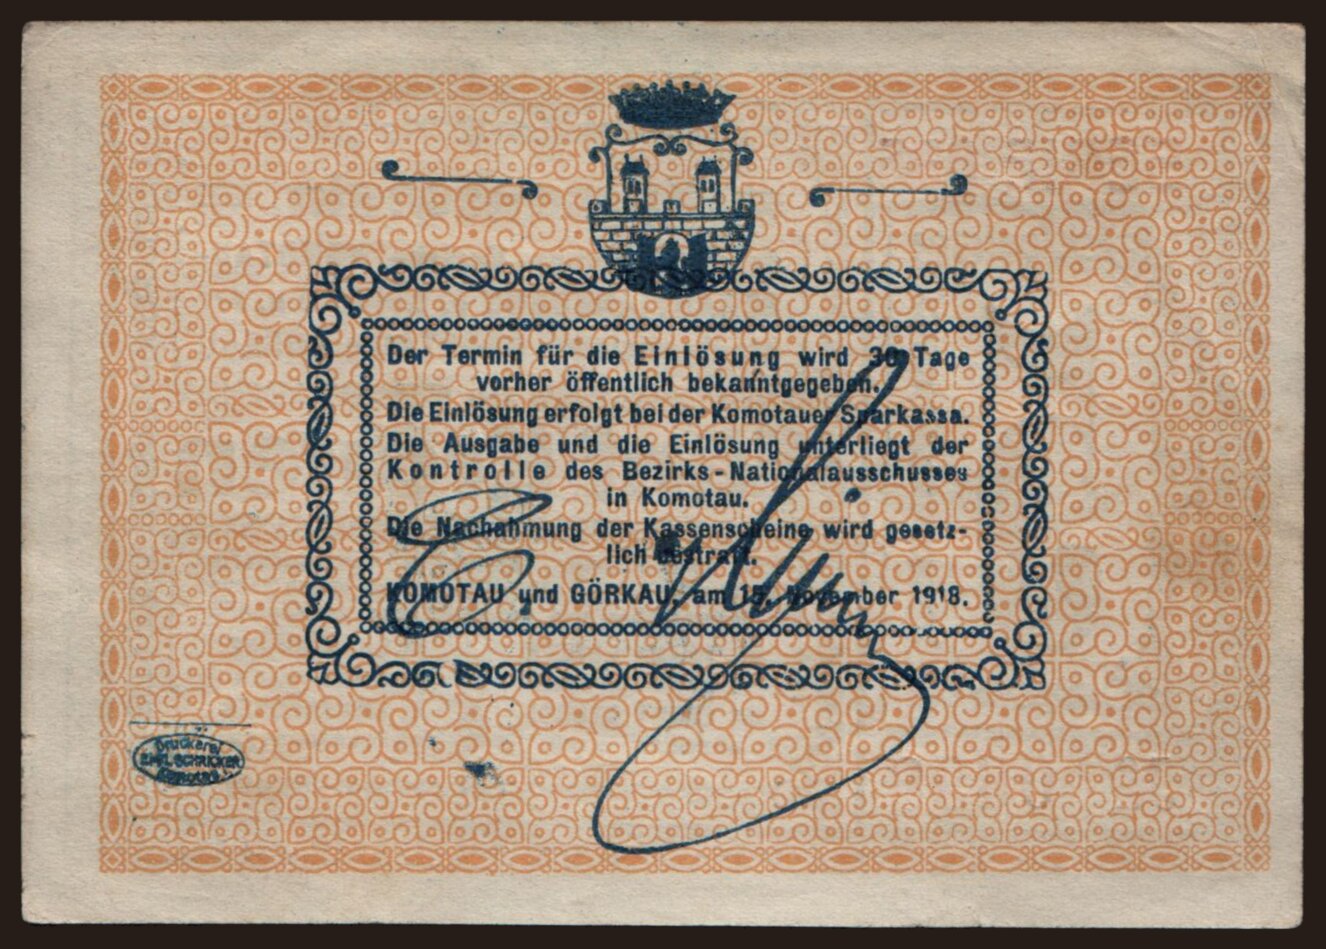 Der Termin für die Einlösung wird 30 Tage
vorher öffentlich bekanntgegeben.
Die Einlösung erfolgt bei der Komotauer Sparkassa.
Die Ausgabe und die Einlösung unterliegt der
Kontrolle des Bezirks-Nationalausschusses
in Komotau.
Die Nachahmung der Kassenscheine wird gesetz-
lich bestraft.
KOMOTAU und GÖRKAU, am 15. November 1918.
Druckerei
EMIL SCHRICKER
Komotau